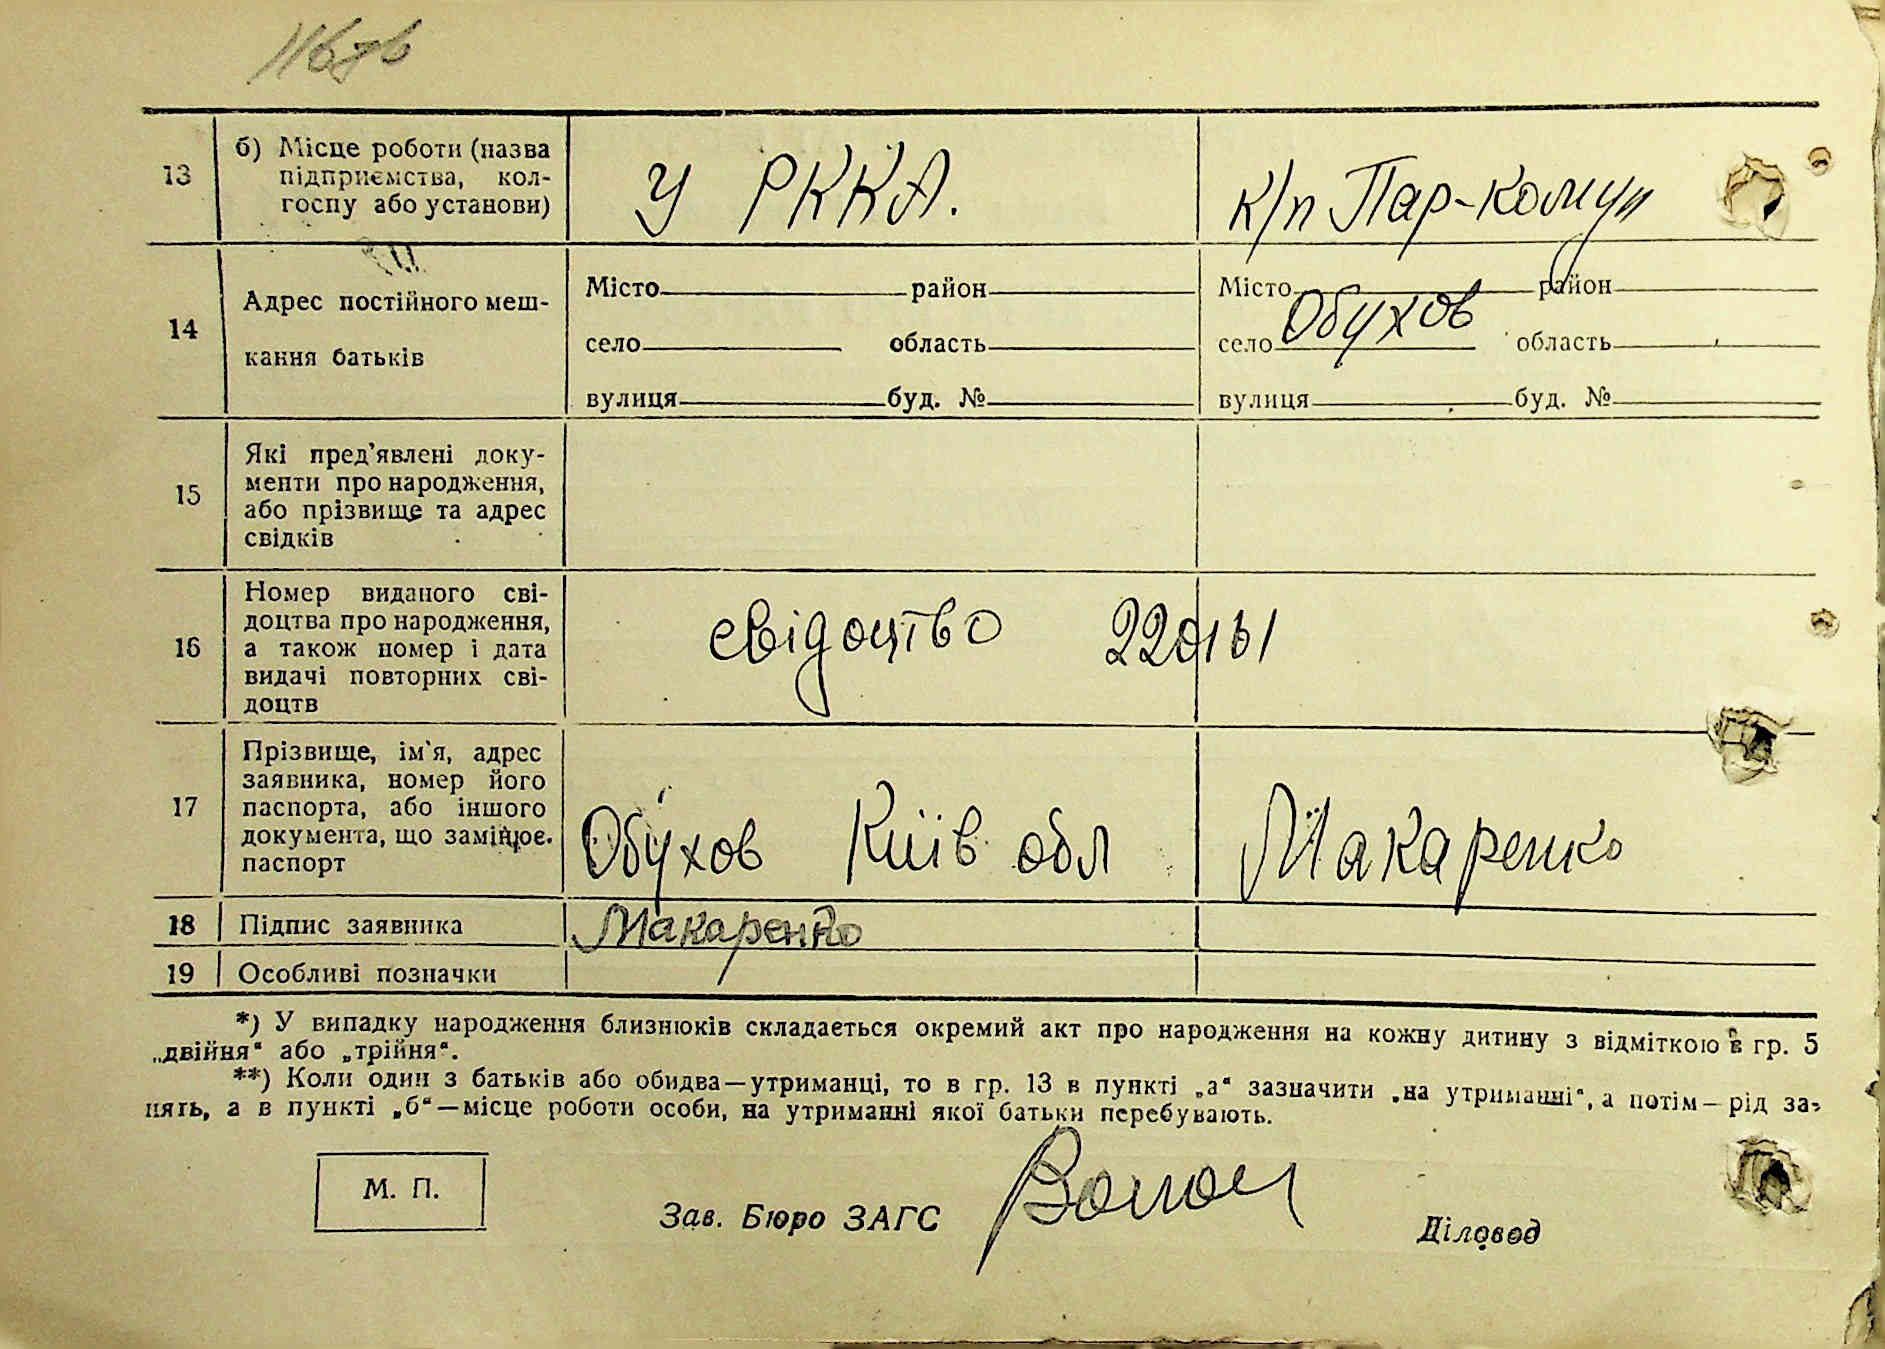 13 б) Місце роботи (назва
підприємства, кол-
госпу або установи)
У РККА.
к/п Пар-Комун
14 Адрес постійного меш-
кання батьків
Місто район
село область
вулиця буд. №
Місто район
село Обухов область
вулиця буд. №
15 Які пред'явлені доку-
менти про народження,
або прізвище та адрес
свідків
16 Номер виданого сві-
доцтва про народження,
а також номер і дата
видачі повторних сві-
доцтв
свідоцтво
17 Прізвище, ім'я, адрес
заявника, номер його
паспорта, або іншого
документа, що замінює
паспорт
Обухов Київ обл Макаренко
18 Підпис заявника Макаренко
19 Особливі позначки
*) У випадку народження близнюків складається окремий акт про народження на кожну дитину з відміткою в гр. 5
„двійня“ або „трійня“.
**) Коли один з батьків або обидва—утриманці, то в гр. 13 в пункті „а“ зазначити „на утриманні“, а потім—рід за-
нять, а в пункті „б“—місце роботи особи, на утриманні якої батьки перебувають.
М. П.
Зав. Бюро ЗАГС
Діловод